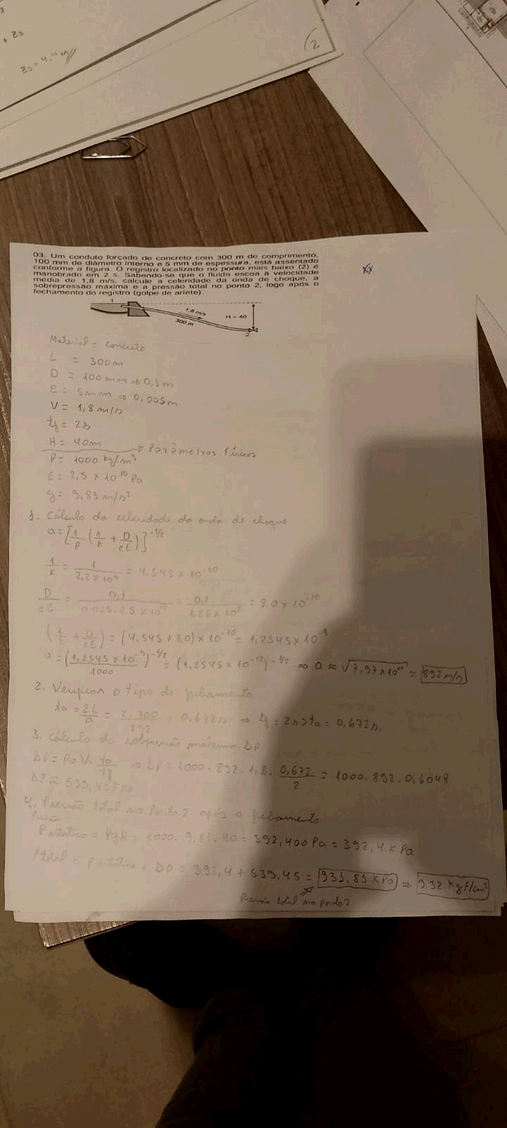 + Z3
Z3 = 4,4 m
2
03. Um conduto forçado de concreto com 300 m de comprimento,
100 mm de diâmetro interno e 5 mm de espessura, está assentado
conforme a figura. O registro localizado no ponto mais baixo (2) é
manobrado em 2 s. Sabendo-se que o fluido escoa à velocidade
média de 1,8 m/s, calcule a celeridade da onda de choque, a
sobrepressão máxima e a pressão total no ponto 2, logo após o
fechamento do registro (golpe de aríete).
1
1,8 m/s
300 m
H = 40
2
Material = concreto
L = 300m
D = 100mm => 0,1m
e = 5mm => 0,005m
V = 1,8 m/s
tf = 2s
H = 40m
Parâmetros Físicos
P = 1000 kg/m³
E = 2,5 x 10¹⁰ Pa
g = 9,81 m/s²
1. Cálculo da celeridade da onda de choque
a = [1/P (1/K + D/eE)]^-1/2
1/K = 1/2,2x10⁹ = 4,545 x 10^-10
D/eE = 0,1/0,005.2,5x10¹⁰ = 0,1/1,25x10⁸ = 8,0 x 10^-10
(1/K + D/eE) = (4,545 + 8,0) x 10^-10 = 1,2545 x 10^-9
a = (1,2545 x 10^-9/1000)^-1/2 = (1,2545 x 10^-12)^-1/2 => a ≈ √7,97x10¹¹ = 892 m/s
2. Verificar o tipo de fechamento
ta = 2L/a = 2.300/892 = 0,672s => tf = 2s > ta = 0,672s
3. Cálculo da sobrepressão máxima DP
DP = P.a.V. ta/tf => DP = 1000.892.1,8. 0,672/2 = 1000.892.0,6048
DP ≈ 539,45 kPa
4. Pressão total no Ponto 2 após o fechamento
P estático = PgH = 1000.9,81.40 = 392,400 Pa = 392,4 kPa
Ptotal = P estático + DP = 392,4 + 539,45 = 931,85 kPa => 9,32 Kgf/cm²
Pressão total no ponto 2